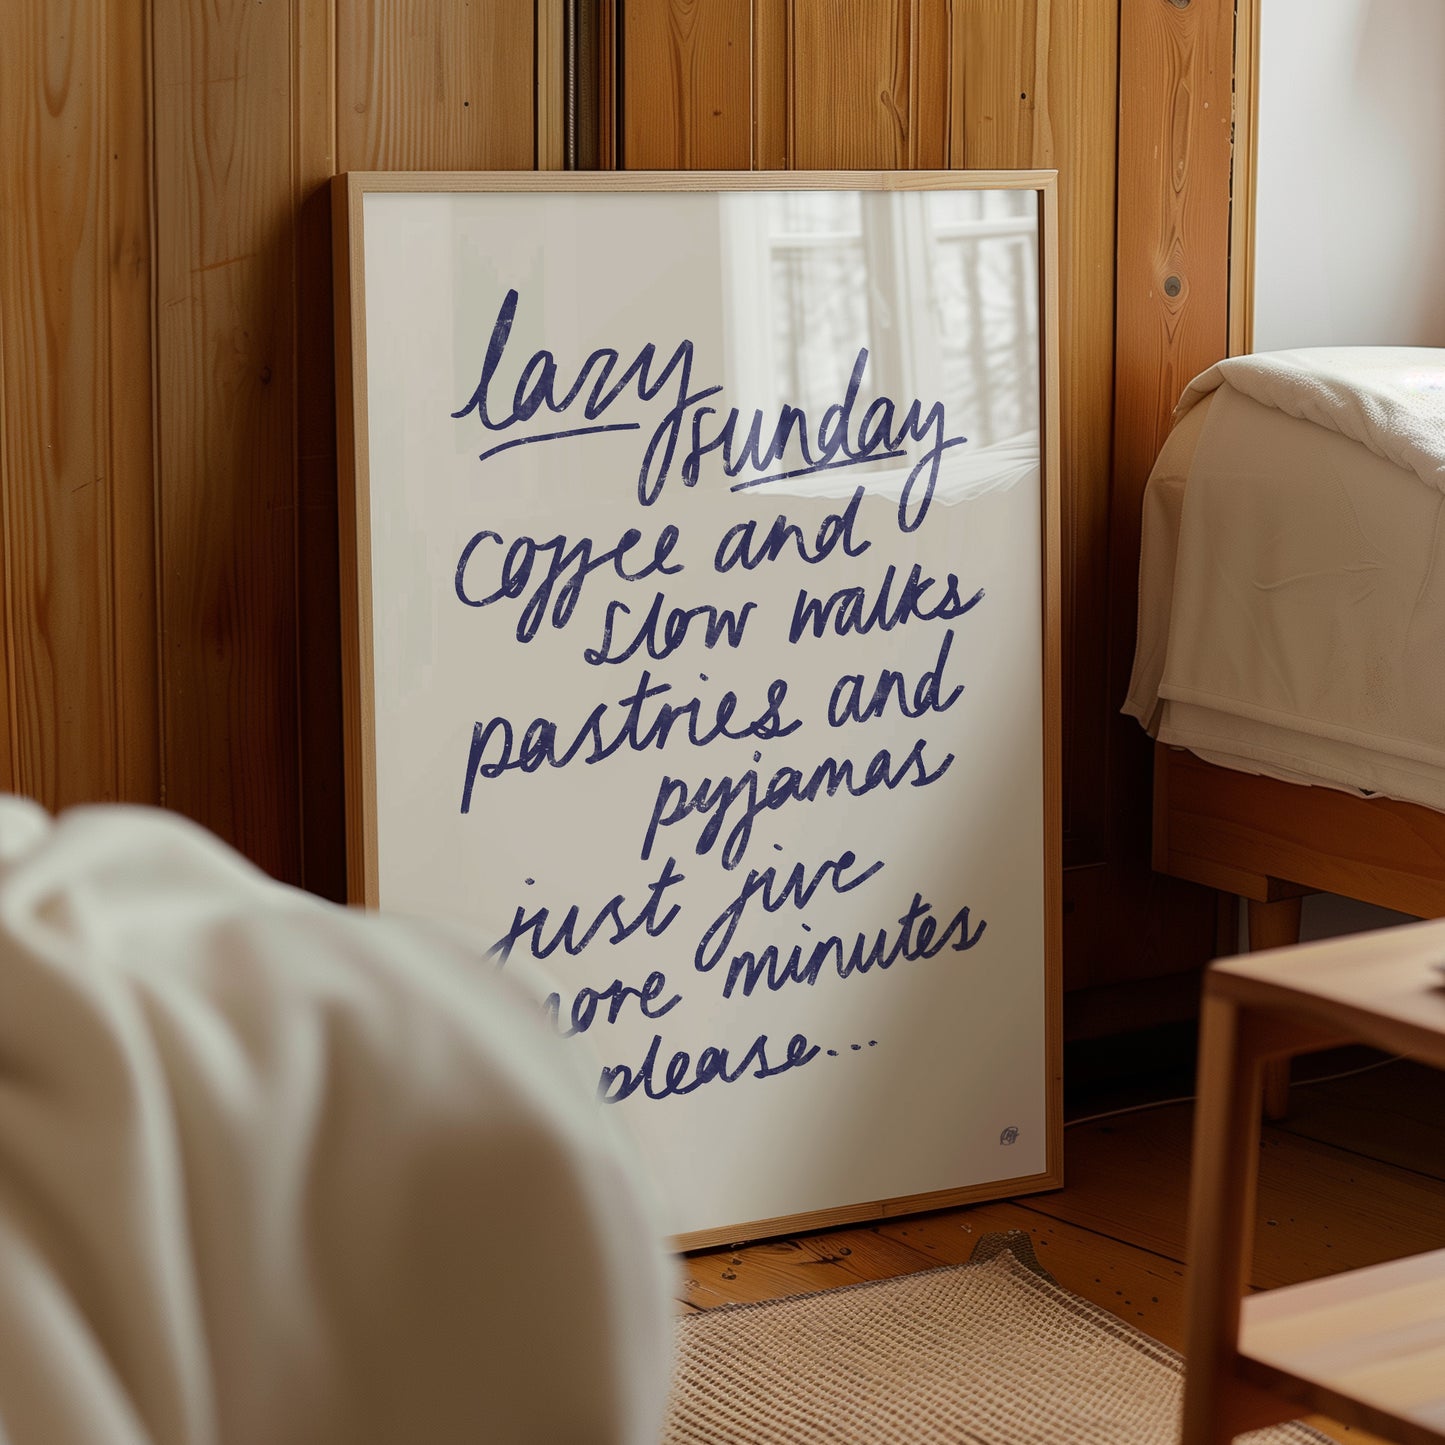 lazy
sunday
coffee and
slow walks
pastries and
pyjamas
just five
more minutes
please...